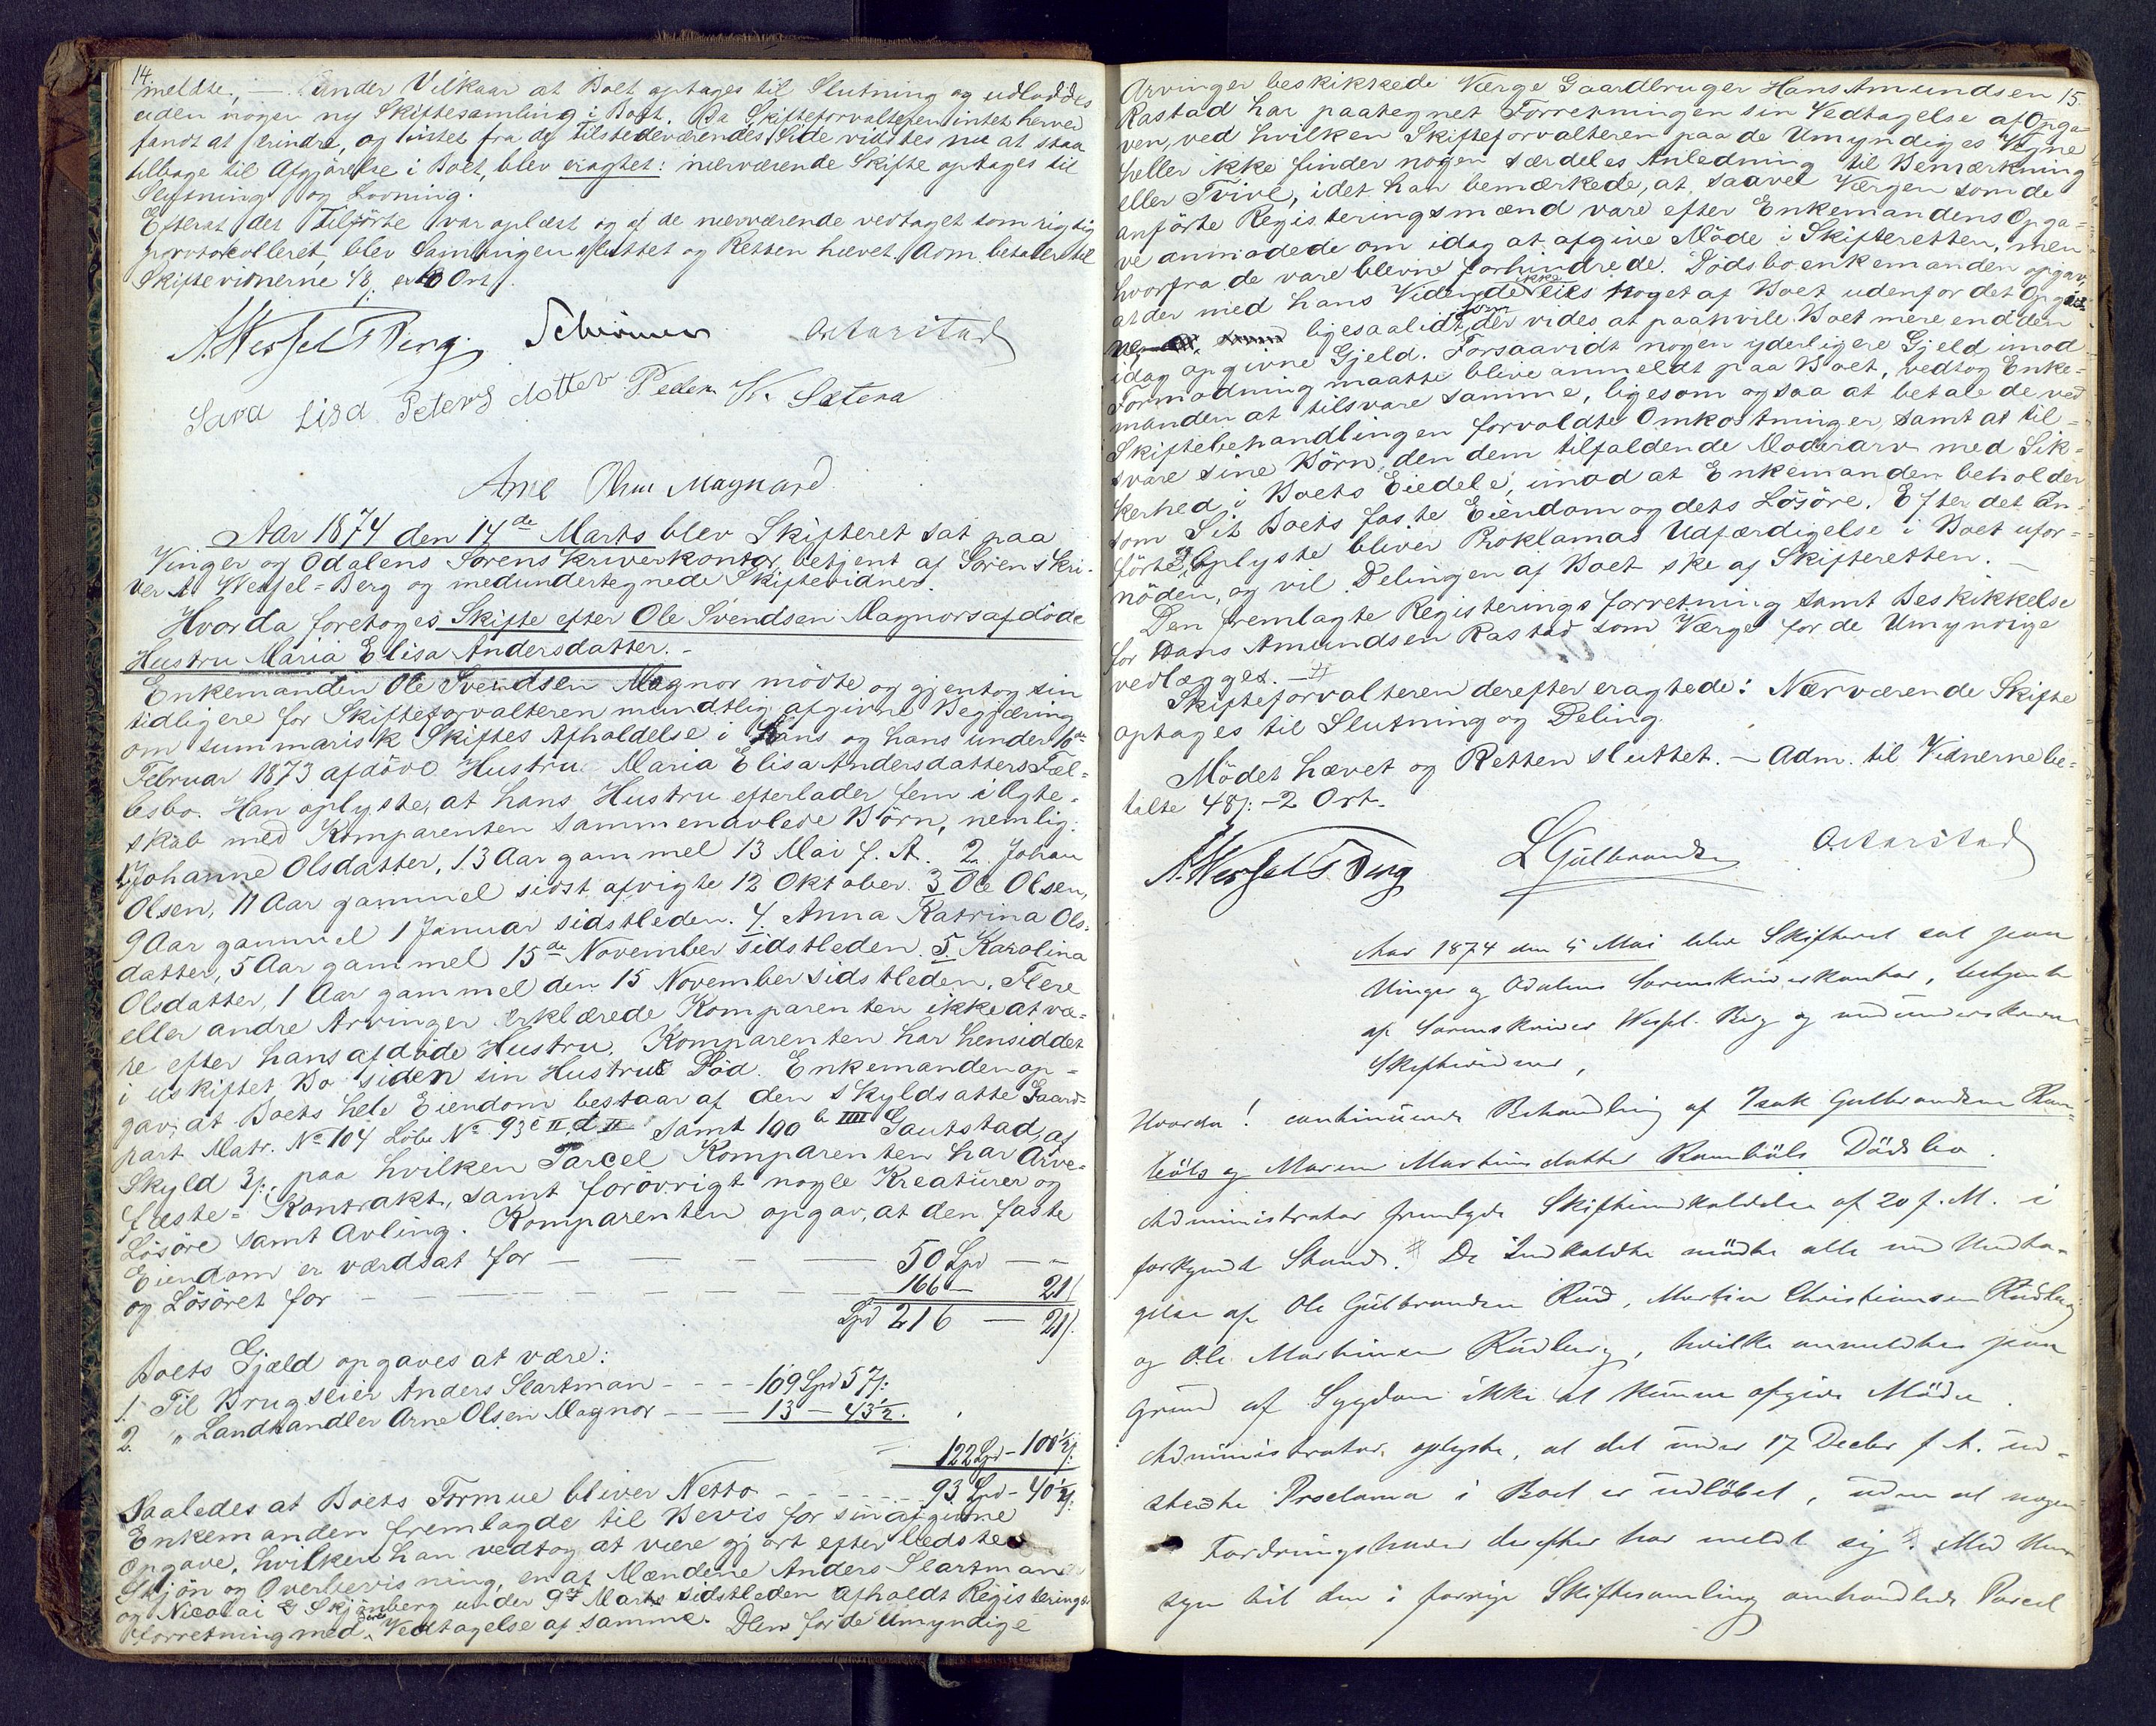 14.
meldte, — under Vilkaar at Boet optages til Slutning og udloddes
uden nogen ny Skiftesamling i Boet. Da Skifteforvalteren intet herved
fandt at erindre, og intet fra de Tilstedeværendes Side vidstes nu at staa
tilbage til Afgjörelse i Boet, blev eragtet: nærværende Skifte optages til
Slutning og Lovning.
Efterat det Tilförte var oplæst og af de nærværende vedtaget som rigtig
protokolleret, blev Samlingen sluttet og Retten hævet. Adm. betalte til
Skiftevidnerne 48 Ort.
A. Wessel Berg. Schirmer O. Aarstad
Sara Lisa Peters dotter Peder K. Sætera
Arne Olsen Magnord
Aar 1874 den 14de Marts blev Skifteret sat paa
Vinger og Odalens Sorenskriverkontor, betjent af Sorenskri-
ver A. Wessel-Berg og medundertegnede Skiftevidner.
Hvorda foretoges Skifte efter Ole Svendsen Magnors afdöde
Hustru Maria Elisa Andersdatter. -
Enkemanden Ole Svendsen Magnor mödte og gjentog sin
tidligere for Skifteforvalteren mundtlig afgivne Begjæring
om summarisk Skiftes Afholdelse i hans og hans under 10de
Februar 1873 afdöde Hustru Maria Elisa Andersdatters Fæl-
lesbo. Han oplyste, at hans Hustru efterlader fem i Ægte-
skab med Komparenten sammenavlede Börn, nemlig:
1. Johanne Olsdatter, 13 Aar gammel 13 Mai f. A. 2. Johan
Olsen, 11 Aar gammel sidst afvigte 12 Oktober. 3 Ole Olsen,
9 Aar gammel 1 Januar sidstleden. 4. Anna Katrina Ols-
datter, 5 Aar gammel 15de November sidstleden. 5. Karolina
Olsdatter, 1 Aar gammel den 15 November sidstleden. Flere
eller andre Arvinger erklærede Komparenten ikke at væ-
re efter hans afdöde Hustru. Komparenten har hensiddet
i uskiftet Bo siden sin Hustrus Död. Enkemanden op-
gav, at Boets hele Eiendom bestaar af den skyldsatte Gaard-
part Matr. No 104 Löbe No 93 c II, d II samt 100 b IIII Gautstad, af
Skyld 3 ß, paa hvilken Parcel Komparenten har Arve-
fæste-Kontrakt, samt foröyrigt nogle Kreaturer og
Lösöre samt Avling. Komparenten opgav, at den faste
Eiendom er værdsat for — — — — 50 Spd — -
og Lösöret for — — — — — — 166 — 21 ß
Spd 216 — 21 ß.
Boets Gjæld opgaves at være:
1. Til Brugseier Anders Slartman - - - 109 Spd 57 ß:
2. " Landhandler Arne Olsen Magnor - - - 13 — 43½.
122 Spd - 100½ ß:
Saaledes at Boets Formue bliver Netto - - - - - 93 Spd - 40½ ß:
Enkemanden fremlagde til Bevis for sin afgivne
Opgave, hvilken han vedtog at være gjort efter bedste
Skjön og Overbevisning, en af Mændene Anders Slartman
og Nicolai G Skjönberg under 9de Marts sidstleden afholdt Registerings-
forretning med deres Vedtagelse af samme. Den for de Umyndige
15.
Arvinger beskikkede Værge Gaardbruger Hans Amundsen
Rastad har paategnet Forretningen sin Vedtagelse af Opga-
ven, ved hvilken Skifteforvalteren paa de Umyndiges Vegne
heller ikke finder nogen særdeles Anledning til Bemærkning
eller Tvivl, idet han bemærkede, at saavel Værgen som de
anförte Registeringsmænd vare efter Enkemandens Opga-
ve anmodede om idag at afgive Möde i Skifteretten, men
hvorfra de vare blevne forhindrede. Dödsboenkemanden opgav,
at der med hans Vidende ikke eies noget af Boet udenfor det Opgiv-
ne, ligesaalidt som der vides at paahvile Boet mere end den
idag opgivne Gjeld. Forsaavidt nogen yderligere Gjeld imod
Formodning maatte blive anmeldt paa Boet, vedtog Enke-
manden at tilsvare samme, ligesom ogsaa at betale de ved
Skiftebehandlingen forvoldte Omkostninger, samt at til-
svare sine Börn den dem tilfaldende Modersarv med Sik-
kerhed i Boets Eiedele, imod at Enkemanden beholder
som Sit Boets faste Eiendom og dets Lösöre. Efter det An-
förte og Oplyste bliver Proklamas Udfærdigelse i Boet ufor-
nöden, og vil Delingen af Boet ske af Skifteretten. —
Den fremlagte Registeringsforretning samt Beskikkelse
for Hans Amundsen Rastad som Værge for de Umyndige
vedlægges. —
Skifteforvalteren derefter eragtede: Nærværende Skifte
optages til Slutning og Deling.
Mödet hævet og Retten sluttet. — Adm. til Vidnerne be-
talte 48 ß: - 2 Ort.
A. Wessel Berg L Gulbrandsen O. Aarstad
Aar 1874 den 5 Mai blev Skifteret sat paa
Vinger og Odalens Sorenskriverkontor, betjent
af Sorenskriver Wessel-Berg og medunderskrevne
Skiftevidner,
Hvorda! continueredes Behandling af Isak Gulbrandsen Ram-
böls og Maren Martinsdatter Ramböls Dödsbo.
Administrator fremlagde Skifteindkaldelse af 20 f. M. i
forkyndt Stand. De Indkaldte mödte alle med Undta-
gelse af Ole Gulbrandsen Rud, Martin Christiansen Rudberg
og Ole Martinsen Rudberg, hvilke anmeldtes paa
Grund af Sygdom ikke at kunne afgive Möde.
Administrator oplyste, at det under 17 Decbr f. A. ud-
stedte Proclama i Boet er udlöbet, uden at nogen
Fordringshaver derefter har meldt sig. Med Hen-
syn til den i forrige Skiftesamling omhandlede Parcel